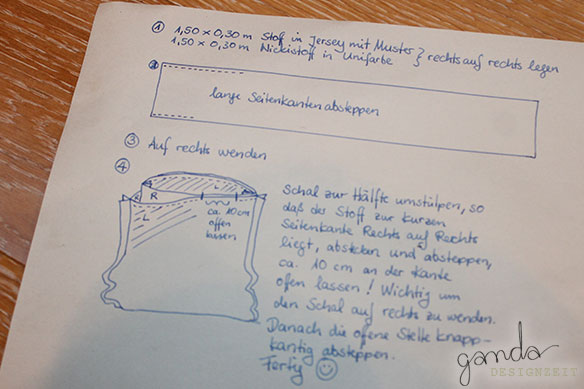 ① 1,50 x 0,30 m Stoff in Jersey mit Muster } rechts auf rechts legen
1,50 x 0,30 m Nickistoff in Unifarbe
②
lange Seitenkanten absteppen
③ Auf rechts wenden
④
L
R
L
ca. 10 cm
offen
lassen
Schal zur Hälfte umstülpen, so
daß der Stoff zur kurzen
Seitenkante Rechts auf Rechts
liegt, abstecken und absteppen,
ca. 10 cm an der Kante
ofen lassen! Wichtig um
den Schal auf rechts zu wenden.
Danach die offene Stelle knapp-
kantig absteppen.
Fertig ☺
ganda
DESIGNZEIT